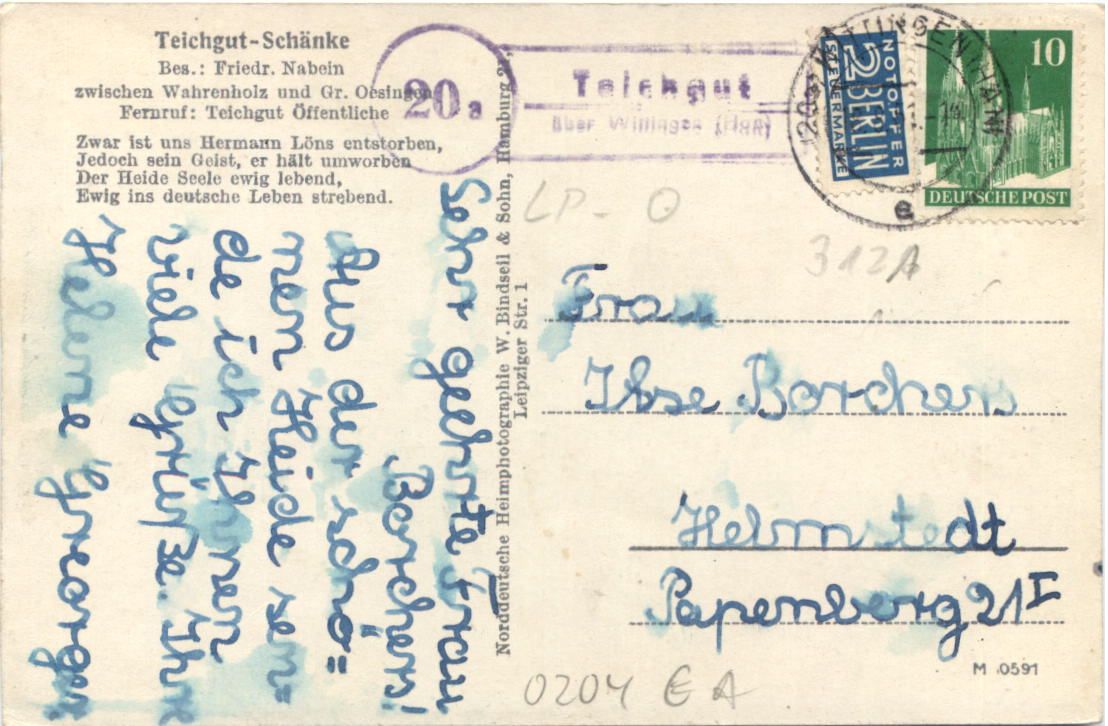 Teichgut-Schänke
Bes.: Friedr. Nabein
zwischen Wahrenholz und Gr. Oesingen
Fernruf: Teichgut Öffentliche
Zwar ist uns Hermann Löns entstorben,
Jedoch sein Geist, er hält umworben
Der Heide Seele ewig lebend,
Ewig ins deutsche Leben strebend.
20a
Teichgut
über
(Han)
NOTOPFER
2 BERLIN
STEUERMARKE
10
DEUTSCHE POST
e
LP - O
312A
Sehr geehrte Frau
Borchers!
Aus der schö=
nen Heide sen=
de ich Ihnen
viele Grüsse. Ihre
Helene
Norddeutsche Heimphotographie W. Bindseil & Sohn, Hamburg 21,
Leipziger Str. 1
Frau
Ilse Borchers
Helmstedt
Papenberg 21 I
M 0591
0204 € A